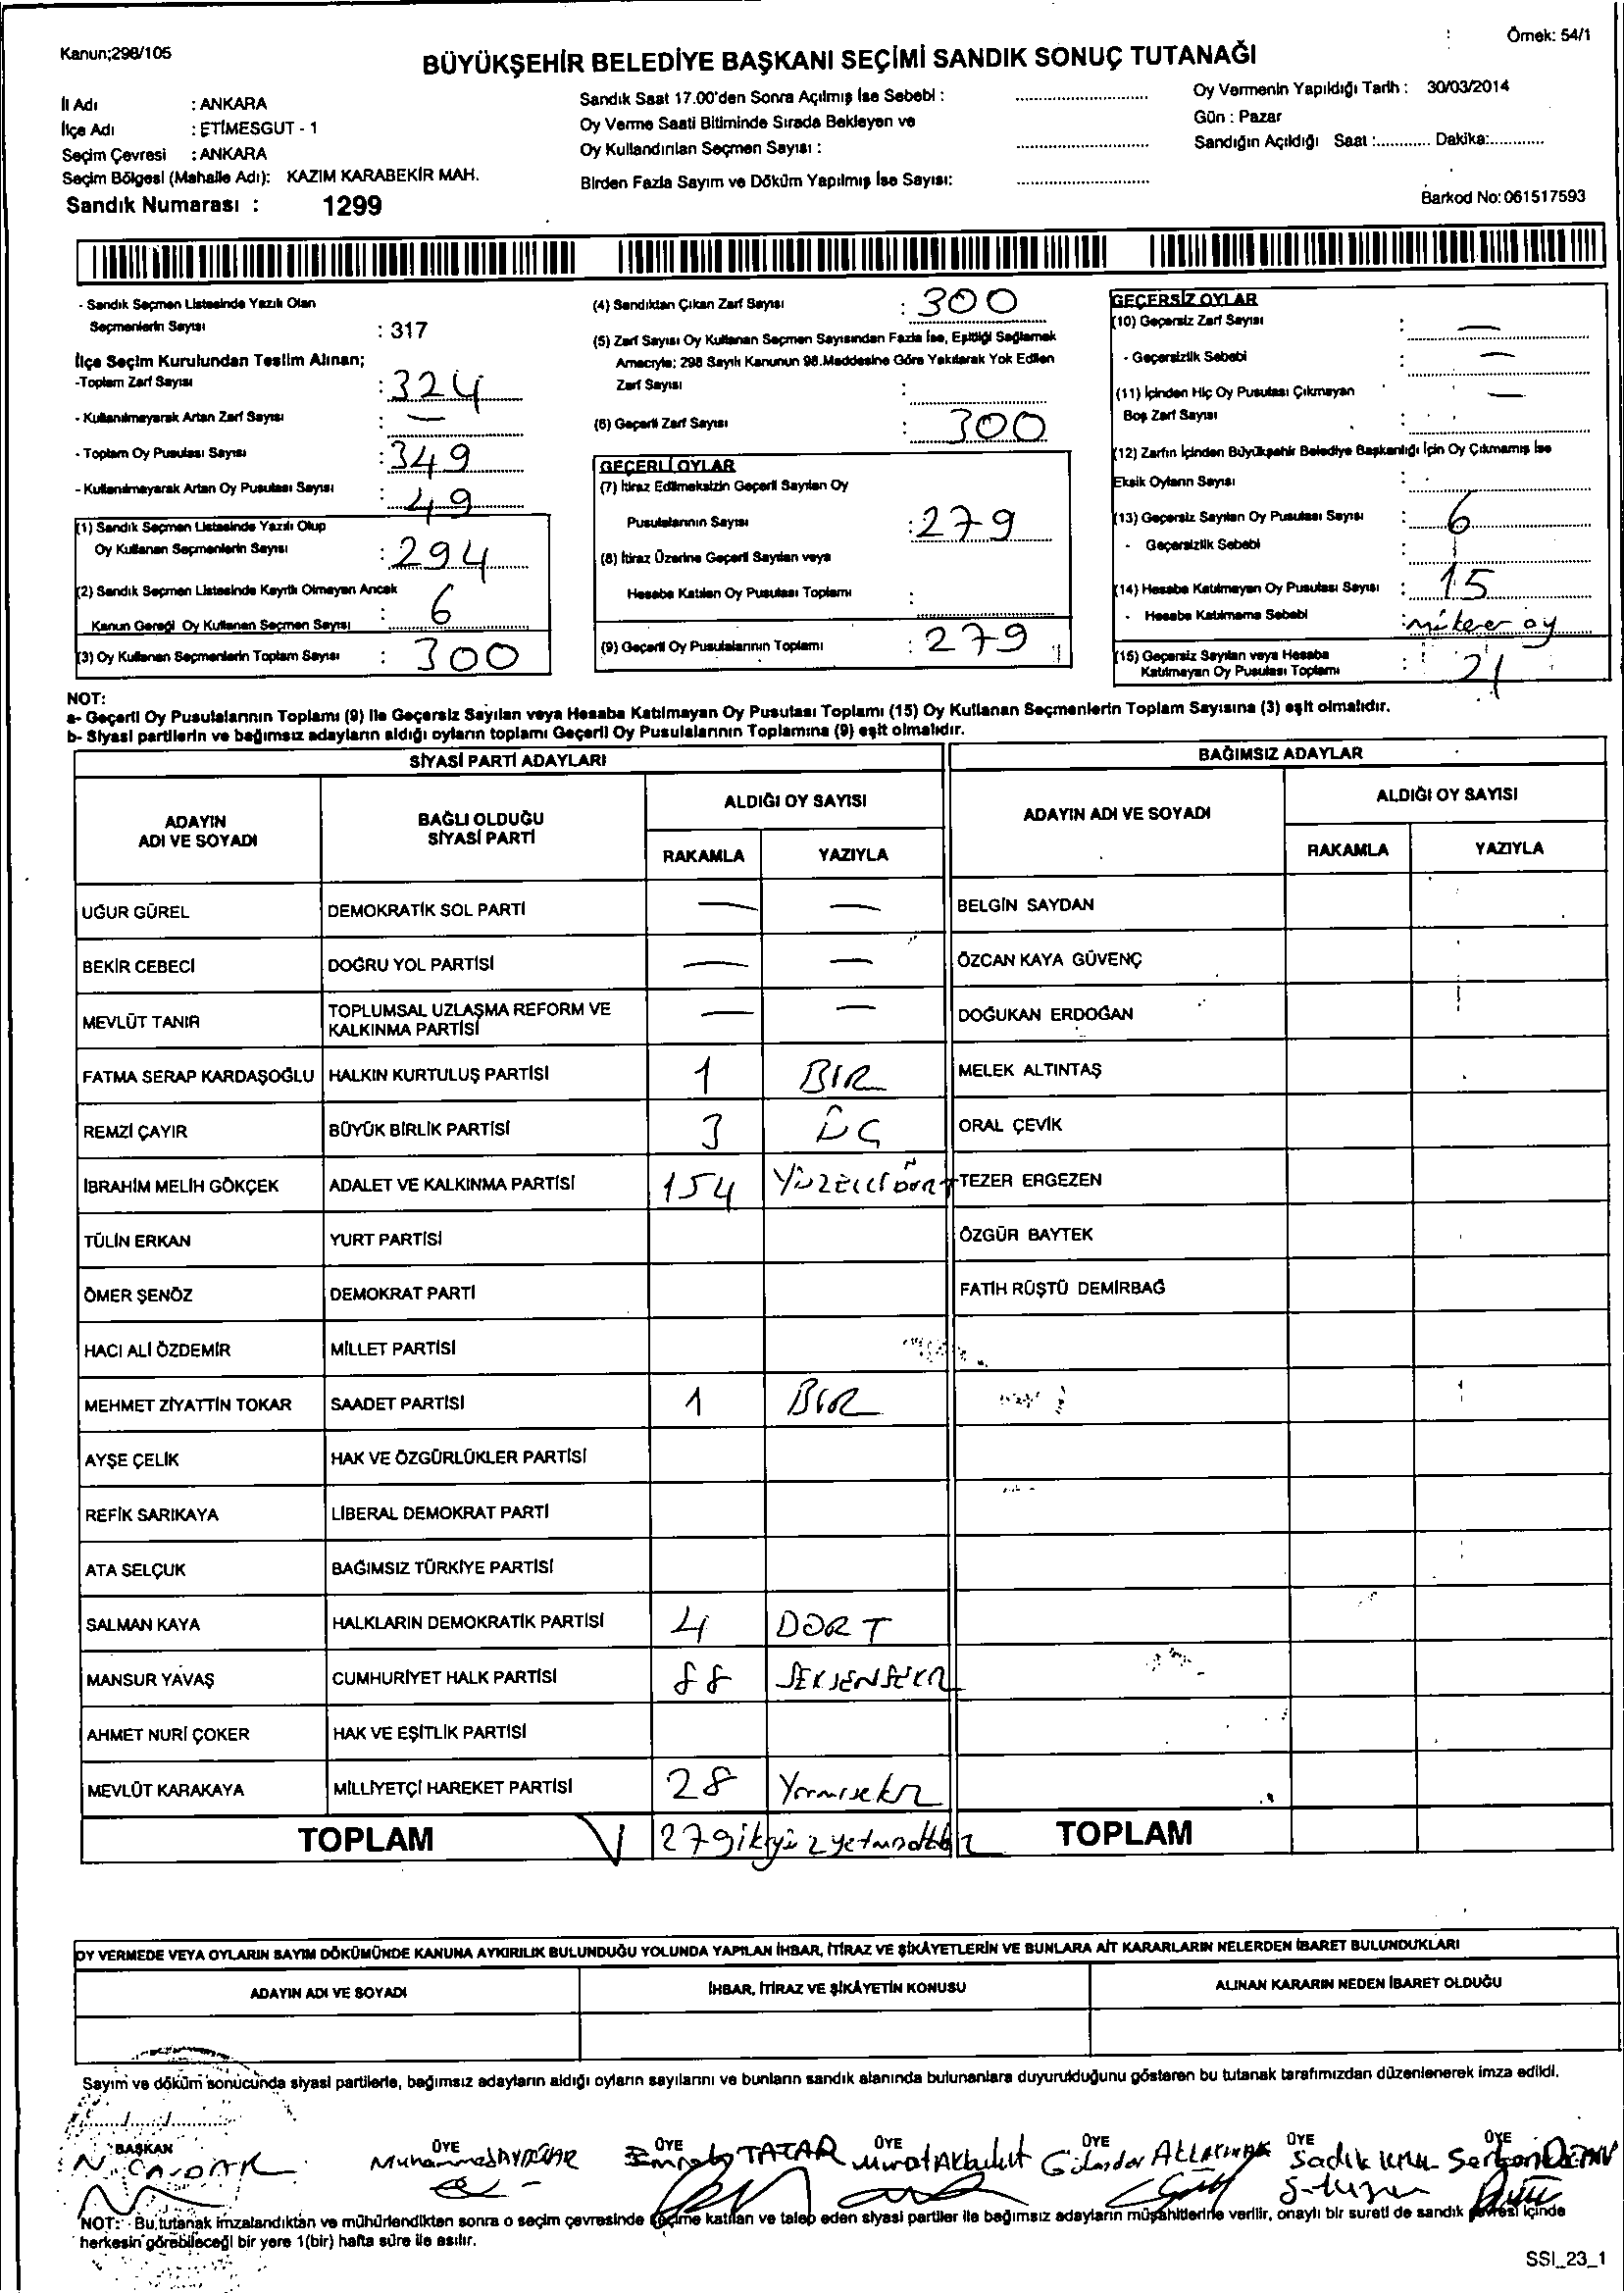 Kanun;298/105
Örnek: 54/1
BÜYÜKŞEHİR BELEDİYE BAŞKANI SEÇİMİ SANDIK SONUÇ TUTANAĞI
İl Adı : ANKARA
İlçe Adı : ETİMESGUT - 1
Seçim Çevresi : ANKARA
Seçim Bölgesi (Mahalle Adı): KAZIM KARABEKİR MAH.
Sandık Numarası : 1299
Sandık Saat 17.00'den Sonra Açılmış İse Sebebi :
Oy Verme Saati Bitiminde Sırada Bekleyen ve
Oy Kullandırılan Seçmen Sayısı :
Birden Fazla Sayım ve Döküm Yapılmış İse Sayısı:
Oy Vermenin Yapıldığı Tarih : 30/03/2014
Gün : Pazar
Sandığın Açıldığı Saat :............ Dakika:............
Barkod No: 061517593
- Sandık Seçmen Listesinde Yazılı Olan
Seçmenlerin Sayısı : 317
İlçe Seçim Kurulundan Teslim Alınan;
-Toplam Zarf Sayısı : 324
- Kullanılmayarak Artan Zarf Sayısı : —
- Toplam Oy Pusulası Sayısı : 349
- Kullanılmayarak Artan Oy Pusulası Sayısı : 49
(1) Sandık Seçmen Listesinde Yazılı Olup
Oy Kullanan Seçmenlerin Sayısı : 294
(2) Sandık Seçmen Listesinde Kayıtlı Olmayan Ancak
Kanun Gereği Oy Kullanan Seçmen Sayısı : 6
(3) Oy Kullanan Seçmenlerin Toplam Sayısı : 300
(4) Sandıktan Çıkan Zarf Sayısı : 300
(5) Zarf Sayısı Oy Kullanan Seçmen Sayısından Fazla İse, Eşitliği Sağlamak
Amacıyla; 298 Sayılı Kanunun 98.Maddesine Göre Yakılarak Yok Edilen
Zarf Sayısı :
(6) Geçerli Zarf Sayısı : 300
GEÇERLİ OYLAR
(7) İtiraz Edilmeksizin Geçerli Sayılan Oy
Pusulalarının Sayısı : 279
(8) İtiraz Üzerine Geçerli Sayılan veya
Hesaba Katılan Oy Pusulası Toplamı :
(9) Geçerli Oy Pusulalarının Toplamı : 279
GEÇERSİZ OYLAR
(10) Geçersiz Zarf Sayısı : —
- Geçersizlik Sebebi : —
(11) İçinden Hiç Oy Pusulası Çıkmayan —
Boş Zarf Sayısı :
(12) Zarfın İçinden Büyükşehir Belediye Başkanlığı İçin Oy Çıkmamış İse
Eksik Oyların Sayısı :
(13) Geçersiz Sayılan Oy Pusulası Sayısı : 6
- Geçersizlik Sebebi :
(14) Hesaba Katılmayan Oy Pusulası Sayısı : 15
- Hesaba Katılmama Sebebi : mükerer oy
(15) Geçersiz Sayılan veya Hesaba
Katılmayan Oy Pusulası Toplamı : 21
NOT:
a- Geçerli Oy Pusulalarının Toplamı (9) ile Geçersiz Sayılan veya Hesaba Katılmayan Oy Pusulası Toplamı (15) Oy Kullanan Seçmenlerin Toplam Sayısına (3) eşit olmalıdır.
b- Siyasi partilerin ve bağımsız adayların aldığı oyların toplamı Geçerli Oy Pusulalarının Toplamına (9) eşit olmalıdır.
SİYASİ PARTİ ADAYLARI
BAĞIMSIZ ADAYLAR
ADAYIN ADI VE SOYADI
BAĞLI OLDUĞU SİYASİ PARTİ
ALDIĞI OY SAYISI
RAKAMLA YAZIYLA
ADAYIN ADI VE SOYADI
ALDIĞI OY SAYISI
RAKAMLA YAZIYLA
UĞUR GÜREL DEMOKRATİK SOL PARTİ — — BELGİN SAYDAN
BEKİR CEBECİ DOĞRU YOL PARTİSİ — — ÖZCAN KAYA GÜVENÇ
MEVLÜT TANIR TOPLUMSAL UZLAŞMA REFORM VE KALKINMA PARTİSİ — — DOĞUKAN ERDOĞAN
FATMA SERAP KARDAŞOĞLU HALKIN KURTULUŞ PARTİSİ 1 BİR MELEK ALTINTAŞ
REMZİ ÇAYIR BÜYÜK BİRLİK PARTİSİ 3 ÜÇ ORAL ÇEVİK
İBRAHİM MELİH GÖKÇEK ADALET VE KALKINMA PARTİSİ 154 YÜZELLİDÖRT TEZER ERGEZEN
TÜLİN ERKAN YURT PARTİSİ ÖZGÜR BAYTEK
ÖMER ŞENÖZ DEMOKRAT PARTİ FATİH RÜŞTÜ DEMİRBAĞ
HACI ALİ ÖZDEMİR MİLLET PARTİSİ
MEHMET ZİYATTİN TOKAR SAADET PARTİSİ 1 BİR
AYŞE ÇELİK HAK VE ÖZGÜRLÜKLER PARTİSİ
REFİK SARIKAYA LİBERAL DEMOKRAT PARTİ
ATA SELÇUK BAĞIMSIZ TÜRKİYE PARTİSİ
SALMAN KAYA HALKLARIN DEMOKRATİK PARTİSİ 4 DÖRT
MANSUR YAVAŞ CUMHURİYET HALK PARTİSİ 88 SEKSENSEKİZ
AHMET NURİ ÇOKER HAK VE EŞİTLİK PARTİSİ
MEVLÜT KARAKAYA MİLLİYETÇİ HAREKET PARTİSİ 28 Yirmisekiz
TOPLAM 279 ikiyüzyetmişdokuz TOPLAM
OY VERMEDE VEYA OYLARIN SAYIM DÖKÜMÜNDE KANUNA AYKIRILIK BULUNDUĞU YOLUNDA YAPILAN İHBAR, İTİRAZ VE ŞİKÂYETLERİN VE BUNLARA AİT KARARLARIN NELERDEN İBARET BULUNDUKLARI
ADAYIN ADI VE SOYADI İHBAR, İTİRAZ VE ŞİKÂYETİN KONUSU ALINAN KARARIN NEDEN İBARET OLDUĞU
Sayım ve döküm sonucunda siyasi partilerle, bağımsız adayların aldığı oyların sayılarını ve bunların sandık alanında bulunanlara duyurulduğunu gösteren bu tutanak tarafımızdan düzenlenerek imza edildi.
BAŞKAN ÜYE ÜYE ÜYE ÜYE ÜYE ÜYE
Muhammed TATAR Murat Akbulut Sadık
NOT: Bu tutanak imzalandıktan ve mühürlendikten sonra o seçim çevresinde seçime katılan ve talep eden siyasi partiler ile bağımsız adayların müşahitlerine verilir, onaylı bir sureti de sandık çevresi içinde
herkesin görebileceği bir yere 1(bir) hafta süre ile asılır.
SSI_23_1